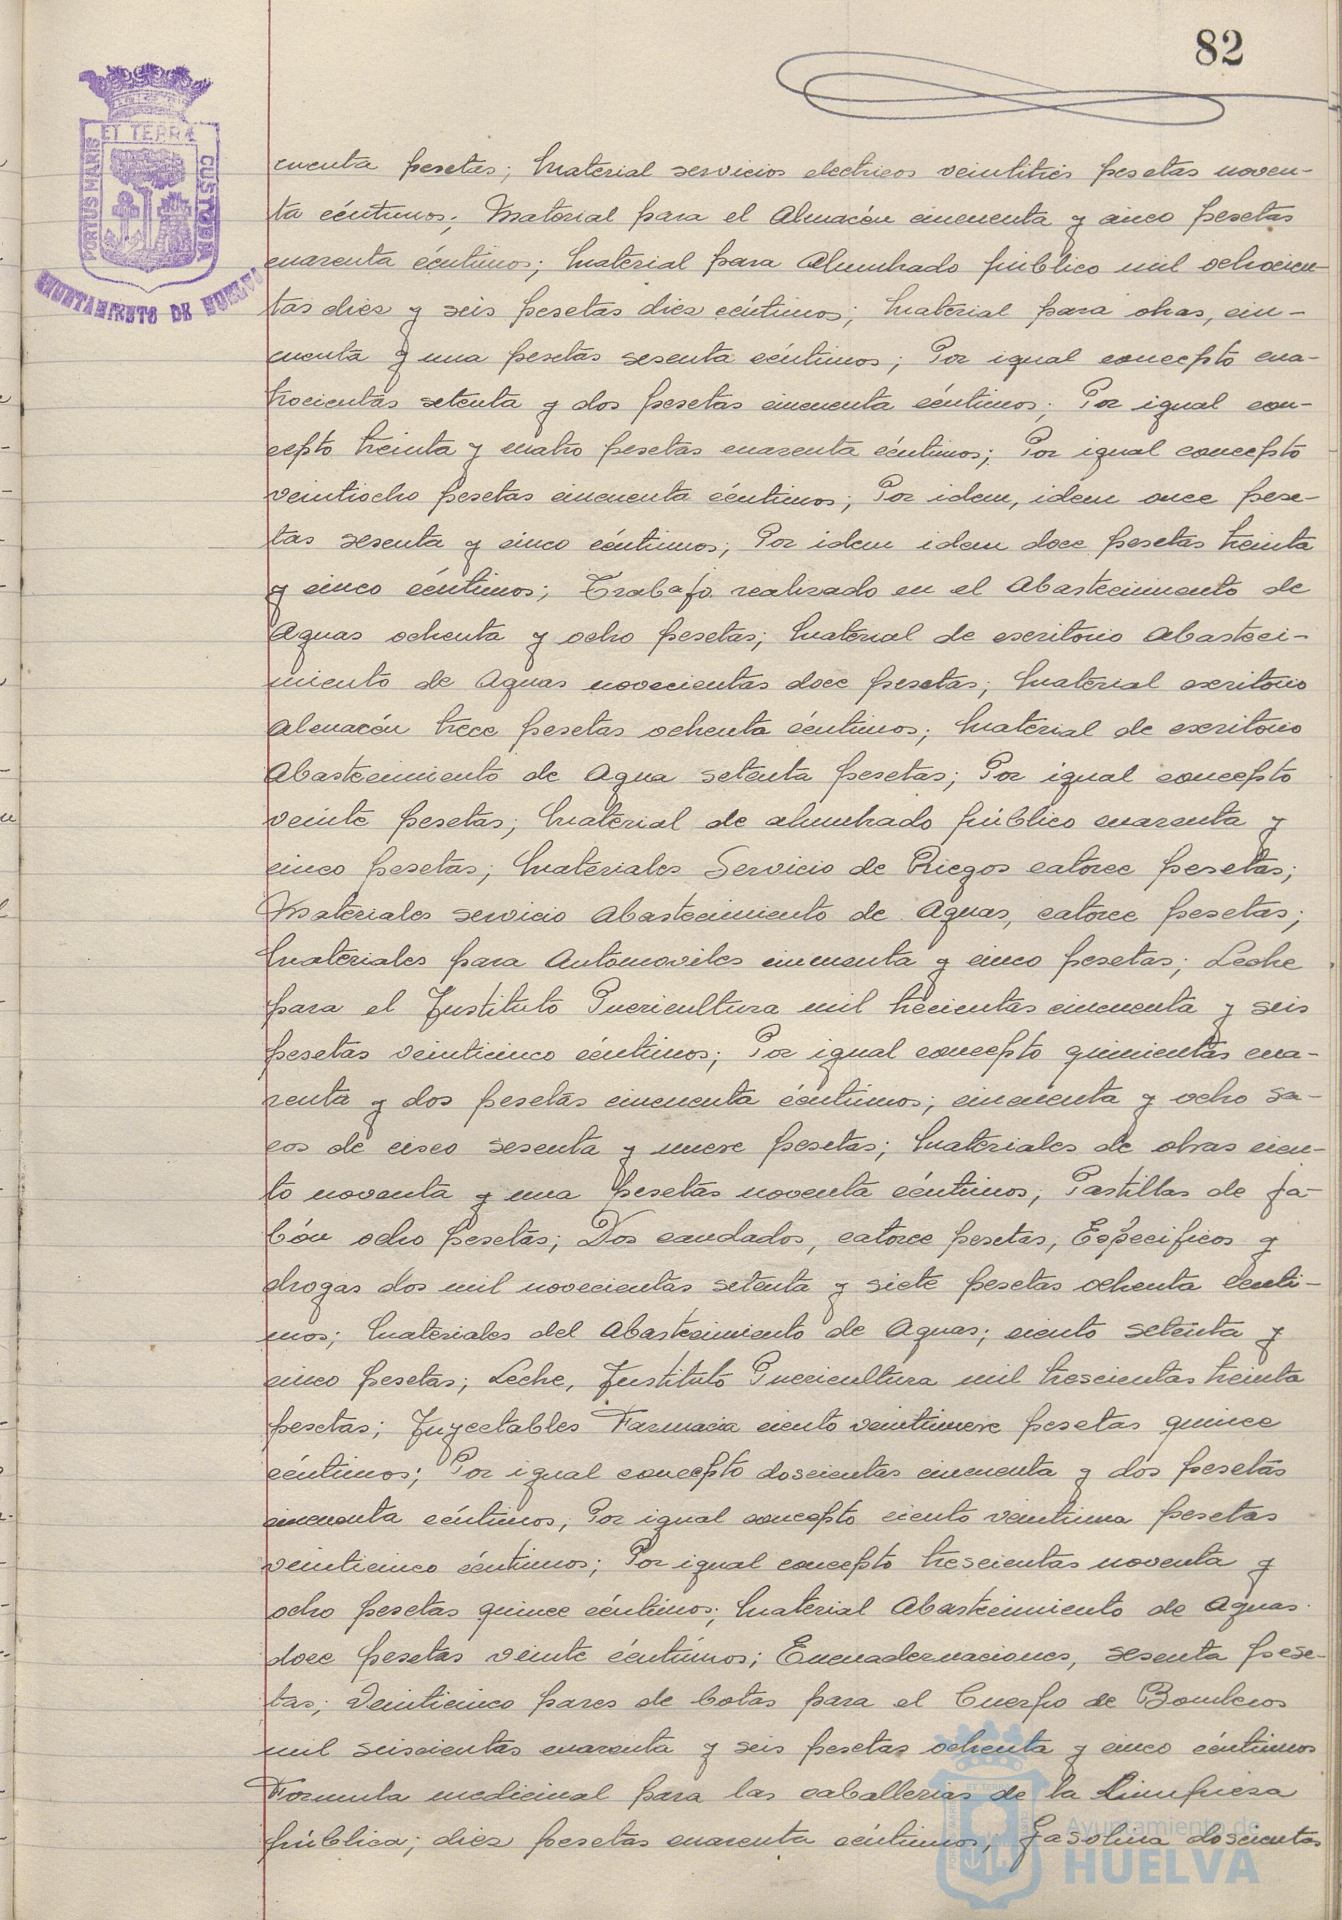 82
PORTUS MARIS ET TERRÆ CUSTODIA
AYUNTAMIENTO DE HUELVA
cuenta pesetas; Material servicios electricos veintitrés pesetas noven-
ta céntimos; Material para el Almacén cincuenta y cinco pesetas
cuarenta céntimos; Material para Alumbrado público mil ochocien-
tas diez y seis pesetas diez céntimos; Material para obras, cin-
cuenta y una pesetas sesenta céntimos; Por igual concepto cua-
trocientas setenta y dos pesetas cincuenta céntimos; Por igual con-
cepto treinta y cuatro pesetas cuarenta céntimos; Por igual concepto
veintiocho pesetas cincuenta céntimos; Por idem, idem once pese-
tas sesenta y cinco céntimos; Por idem idem doce pesetas treinta
y cinco céntimos; Trabajo realizado en el Abastecimiento de
Aguas ochenta y ocho pesetas; Material de escritorio Abasteci-
miento de Aguas novecientas doce pesetas; Material escritorio
Almacén trece pesetas ochenta céntimos; Material de escritorio
Abastecimiento de Agua setenta pesetas; Por igual concepto
veinte pesetas; Material de alumbrado público cuarenta y
cinco pesetas; Materiales Servicio de Riegos catorce pesetas;
Materiales servicio Abastecimiento de Aguas, catorce pesetas;
Materiales para Automoviles cincuenta y cinco pesetas; Leche
para el Instituto Puericultura mil trecientas cincuenta y seis
pesetas veinticinco céntimos; Por igual concepto quinientas cua-
renta y dos pesetas cincuenta céntimos; cincuenta y ocho sa-
cos de cisco sesenta y nueve pesetas; Materiales de obras cien-
to noventa y una pesetas noventa céntimos; Pastillas de ja-
bón ocho pesetas; Dos candados, catorce pesetas; Especificos y
drogas dos mil novecientas setenta y siete pesetas ochenta centi-
mos; Materiales del Abastecimiento de Aguas; ciento setenta y
cinco pesetas; Leche, Instituto Puericultura mil trescientas treinta
pesetas; Inyectables Farmacia ciento veintinueve pesetas quince
céntimos; Por igual concepto doscientas cincuenta y dós pesetas
cincuenta céntimos; Por igual concepto ciento veintiuna pesetas
veinticinco céntimos; Por igual concepto trescientas noventa y
ocho pesetas quince céntimos; Material Abastecimiento de Aguas
doce pesetas veinte céntimos; Encuadernaciones, sesenta pese-
tas; Veinticinco pares de botas para el Cuerpo de Bomberos
mil seiscientas cuarenta y seis pesetas ochenta y cinco céntimos
Formula medicinal para las caballerias de la Limpieza
pública; diez pesetas cuarenta céntimos; Gasolina doscientas
Ayuntamiento de
HUELVA